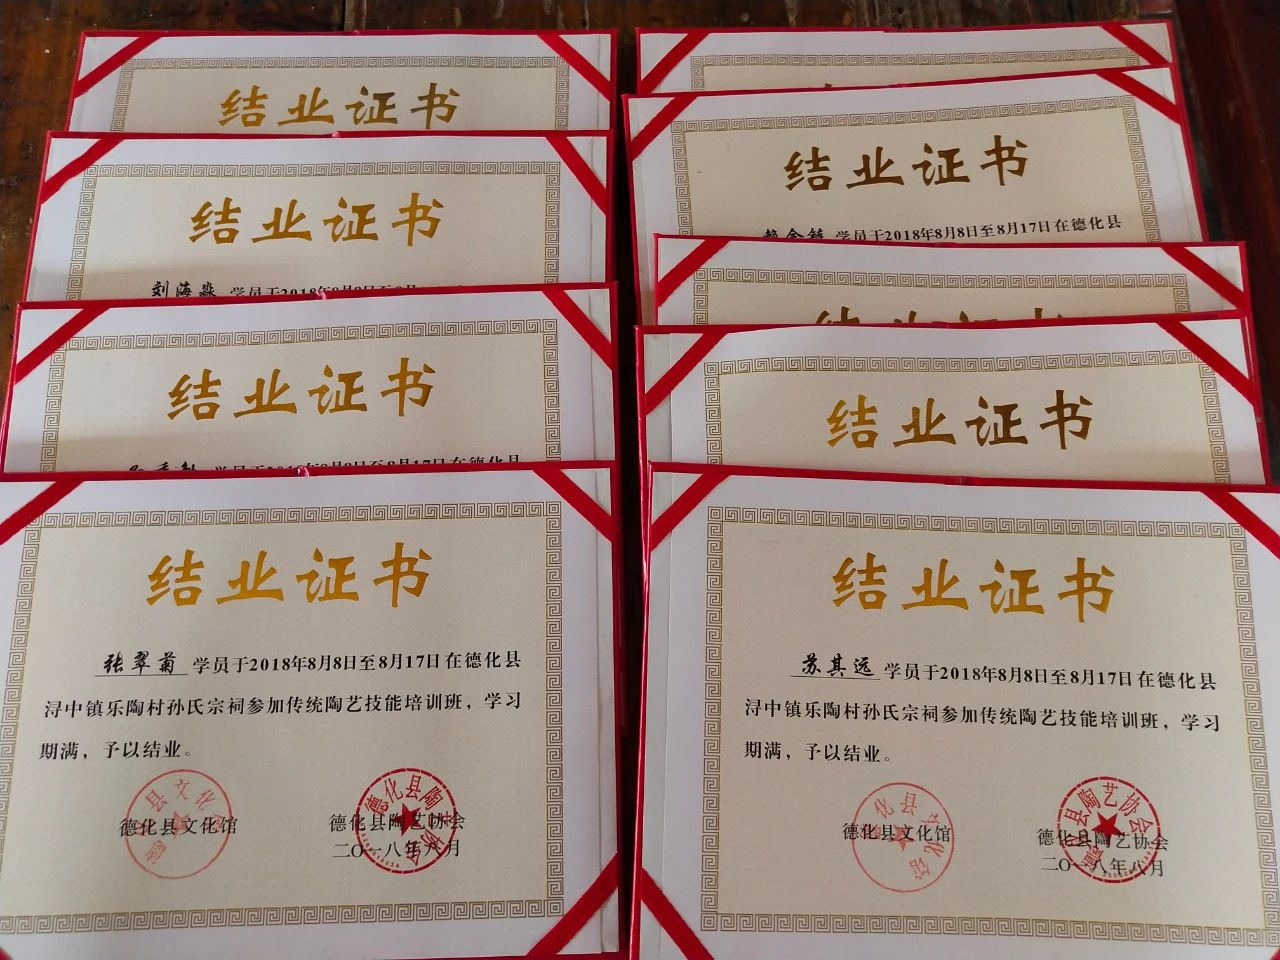 结业证书
结业证书
刘海淼 学员于2018年8月8日至8月
结业证书
学员于2018年8月8日至8月17日在德化县
结业证书
张翠菊 学员于2018年8月8日至8月17日在德化县
浔中镇乐陶村孙氏宗祠参加传统陶艺技能培训班，学习
期满，予以结业。
德化县文化馆
德化县陶艺协会
二〇一八年八月
结业证书
学员于2018年8月8日至8月17日在德化县
结业证书
结业证书
结业证书
苏其远 学员于2018年8月8日至8月17日在德化县
浔中镇乐陶村孙氏宗祠参加传统陶艺技能培训班，学习
期满，予以结业。
德化县文化馆
德化县陶艺协会
二〇一八年八月